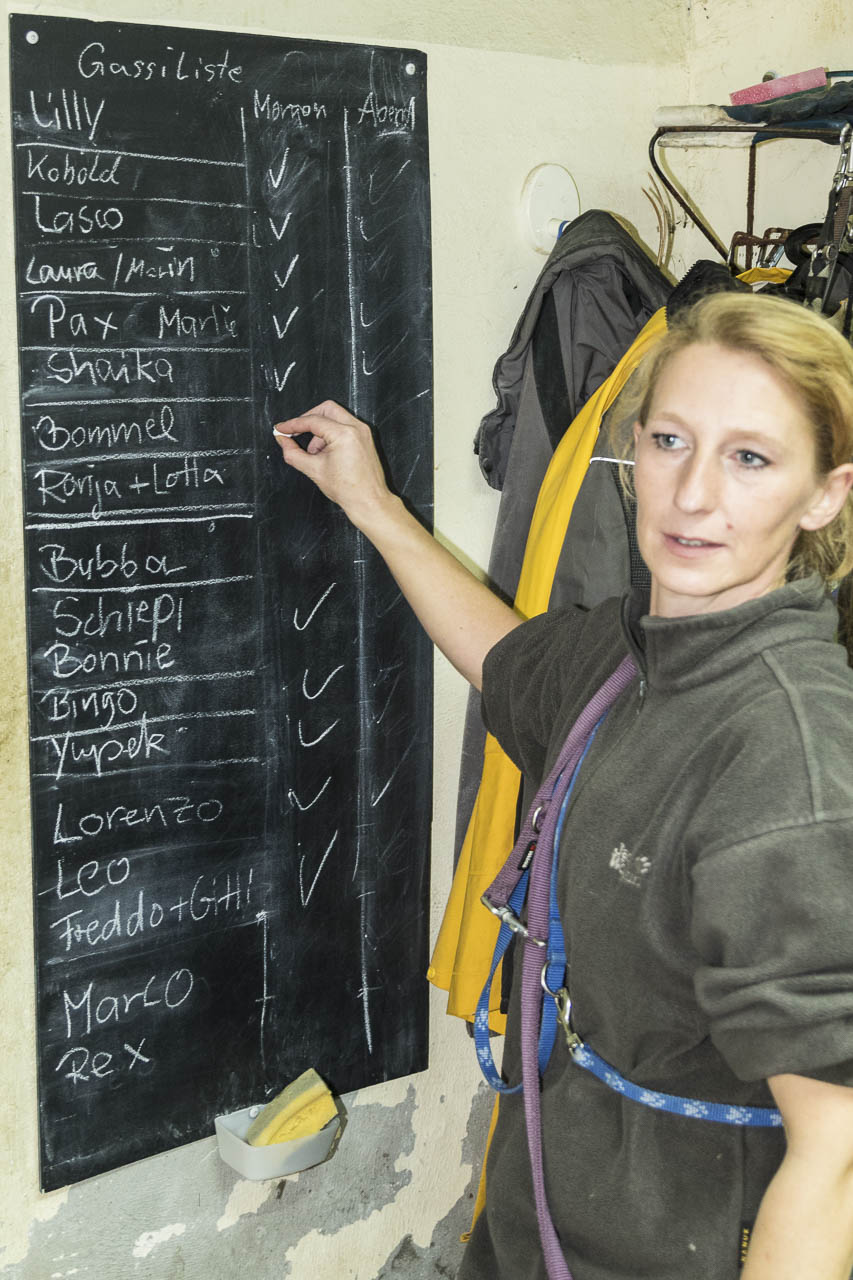 GassiListe
Lilly Morgen Abend
Kobold
Lasco
Laura/Merlin
Pax Marlie
Shaika
Bommel
Ronja + Lotta
Bubba
Schiepi
Bonnie
Bingo
Yupek
Lorenzo
Leo
Freddo + Gitti
Marco
Rex